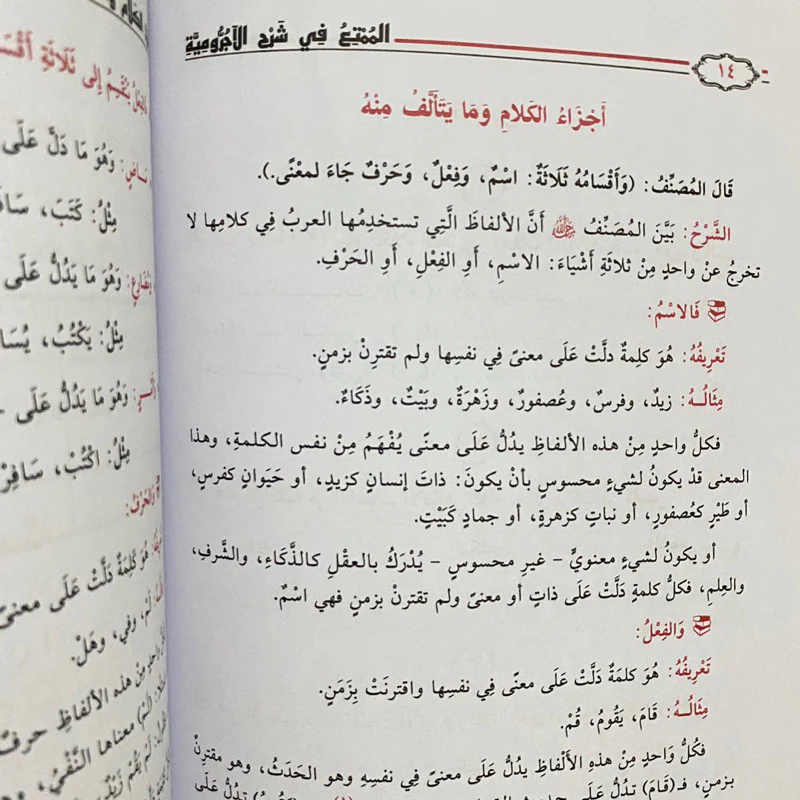 ١٤
المُمْتِعُ فِي شَرْحِ الآجُرُّومِيَّةِ
أَجْزَاءُ الكَلَامِ وَمَا يَتَأَلَّفُ مِنْهُ
قَالَ المُصَنِّفُ: (وَأَقْسَامُهُ ثَلَاثَةٌ: اسْمٌ، وَفِعْلٌ، وَحَرْفٌ جَاءَ لمعْنًى.).
الشَّرْحُ: بَيَّنَ المُصَنِّفُ رَحِمَهُ اللهُ أَنَّ الألفاظَ الَّتِي تستخدِمُها العربُ فِي كلامِها لا
تخرجُ عنْ واحدٍ مِنْ ثلاثةِ أَشْيَاءَ: الاسْمِ، أَوِ الفِعْلِ، أَوِ الحَرْفِ.
فَالاسْمُ:
تَعْرِيفُهُ: هُوَ كلِمةٌ دلَّتْ عَلَى معنىً فِي نفسِها ولم تقترِنْ بزمنٍ.
مِثَالُـهُ: زيدٌ، وفرسٌ، وعُصفورٌ، وزَهْرَةٌ، وبَيْتٌ، وذَكَاءٌ.
فكلُّ واحدٍ مِنْ هذه الألفاظِ يدُلُّ عَلَى معنًى يُفْهَمُ مِنْ نفس الكلمةِ، وهذا
المعنى قدْ يكونُ لشيءٍ محسوسٍ بأنْ يكونَ: ذاتَ إنسانٍ كزيدٍ، أو حَيَوانٍ كفرسٍ،
أو طَيْرٍ كعُصفورٍ، أو نباتٍ كزهرةٍ، أو جمادٍ كَبَيْتٍ.
أو يكونُ لشيءٍ معنويٍّ – غيرِ محسوسٍ – يُدْرَكُ بالعقْلِ كالذَّكَاءِ، والشَّرفِ،
والعِلمِ، فكلُّ كلمةٍ دَلَّتْ عَلَى ذاتٍ أو معنىً ولم تقترنْ بزمنٍ فهي اسْمٌ.
وَالفِعْلُ:
تَعْرِيفُهُ: هُوَ كلمةٌ دَلَّتْ عَلَى معنًى فِي نفسِها واقترنَتْ بِزَمَنٍ.
مِثَالُـهُ: قَامَ، يَقُومُ، قُمْ.
فكُلُّ وَاحدٍ مِنْ هذهِ الأَلْفاظِ يدُلُّ عَلَى معنىً فِي نفسِهِ وهو الحَدَثُ، وهو مقترِنٌ
بزمنٍ، فـ(قَامَ) تدُلُّ عَلَى
ثَلَاثَةِ
وَهُوَ مَا دَلَّ عَلَى
مِثْلُ: كَتَبَ،
وَهُوَ مَا يَدُلُّ عَلَى
مِثْلُ: يَكْتُبُ،
وَهُوَ مَا يَدُلُّ عَلَى
مِثْلُ: اكْتُبْ،
وَالحَرْفُ:
هُوَ كَلِمَةٌ دَلَّتْ عَلَى معنىً
لَمْ، وفي، وهَلْ.
واحدٍ مِنْ هذه الألفاظِ حرفٌ
معناها النَّفْيُ،